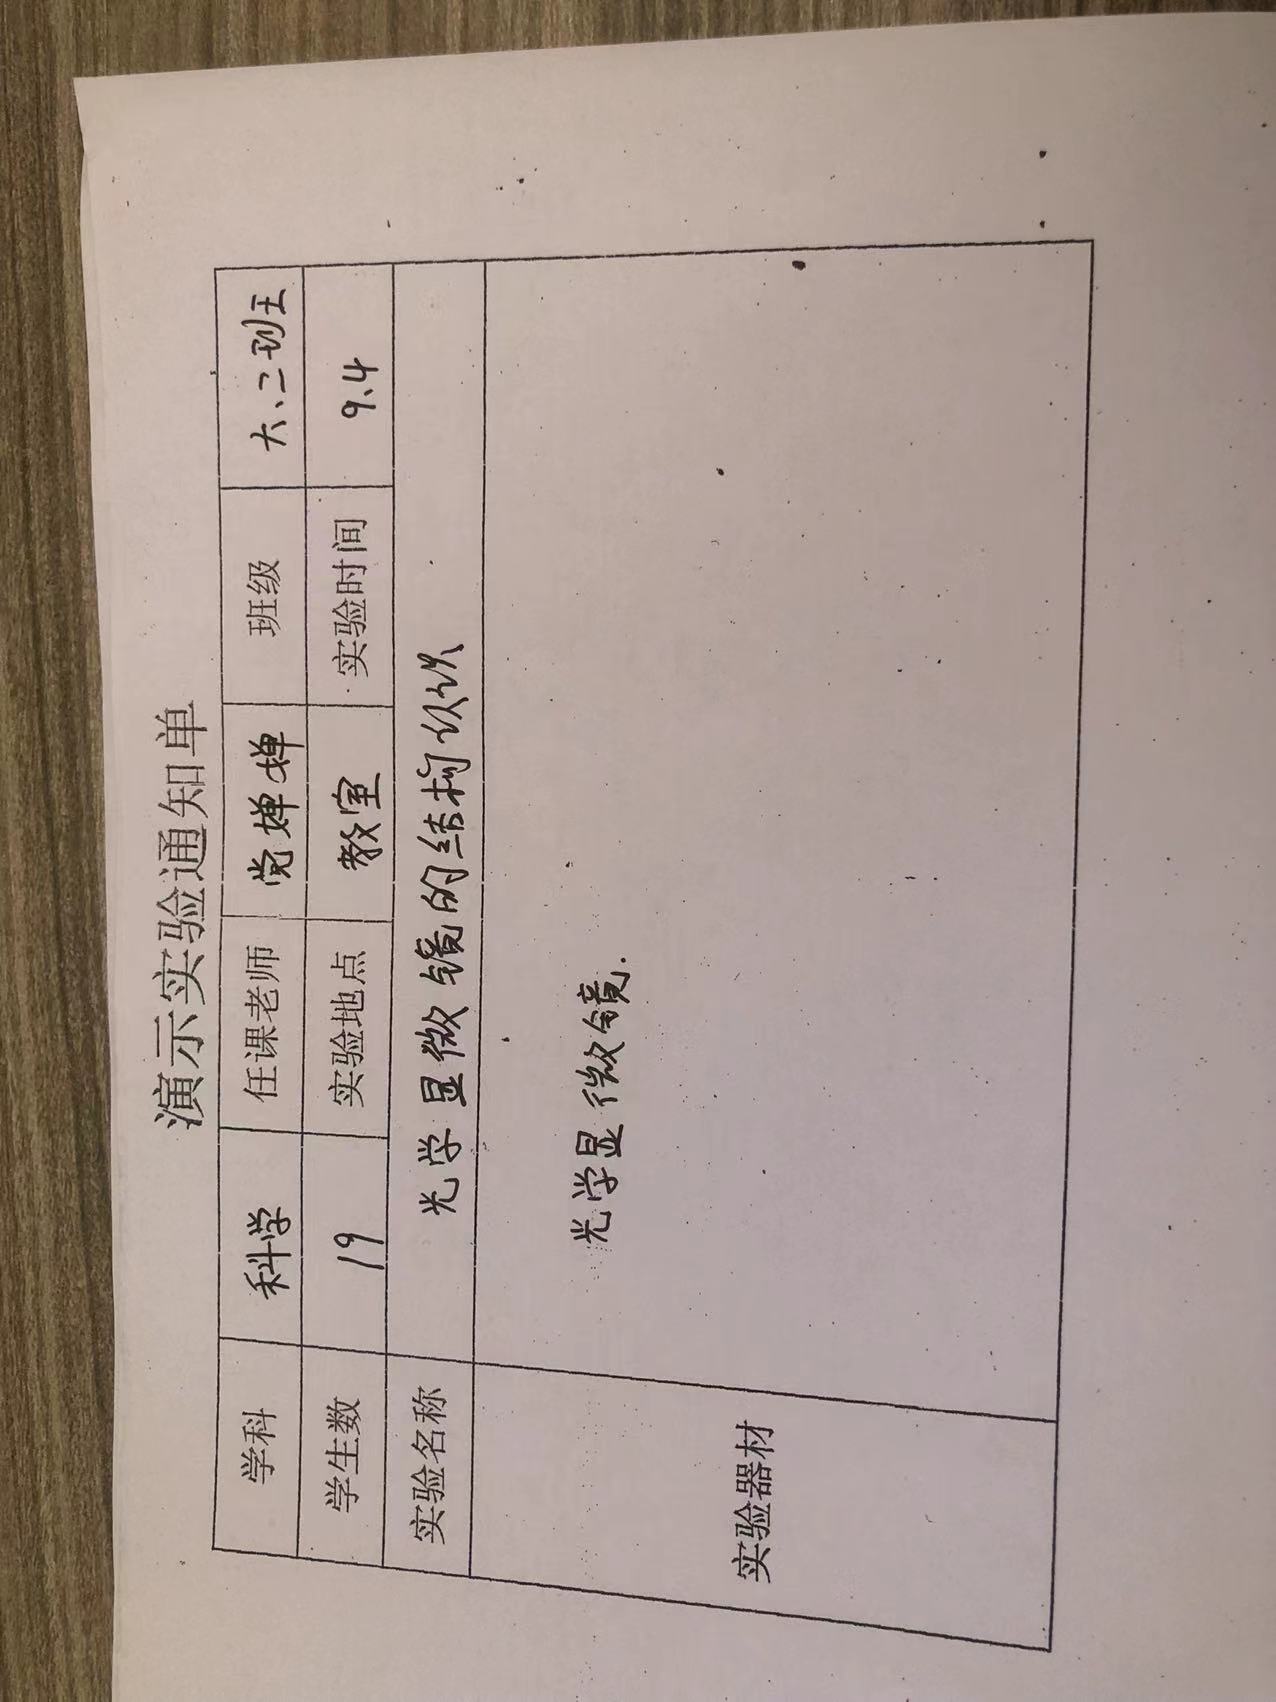 演示实验通知单
学科 科学 任课老师 党婵婵 班级 六、二班
学生数 19 实验地点 教室 实验时间 9.4
实验名称 光学显微镜的结构认识
实验器材 光学显微镜.